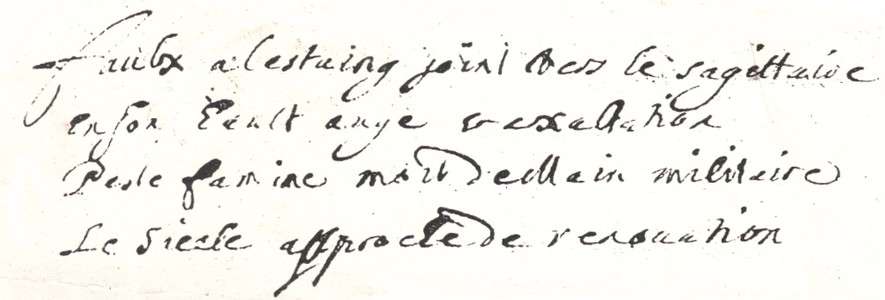 faulx a lestaing joint vers le sagittaire
en son hault auge & exaltation
Peste famine mort de main militaire
Le siecle approche de renouation